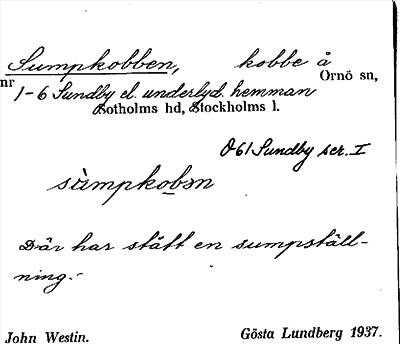 Sumpkobben, kobbe å
Ornö sn,
nr 1-6 Sundby el. underlyd. hemman
Sotholms hd, Stockholms l.
Ö 61 Sundby ser. I
sùmpkobən
Där har stått en sumpställ-
ning.
John Westin. Gösta Lundberg 1937.